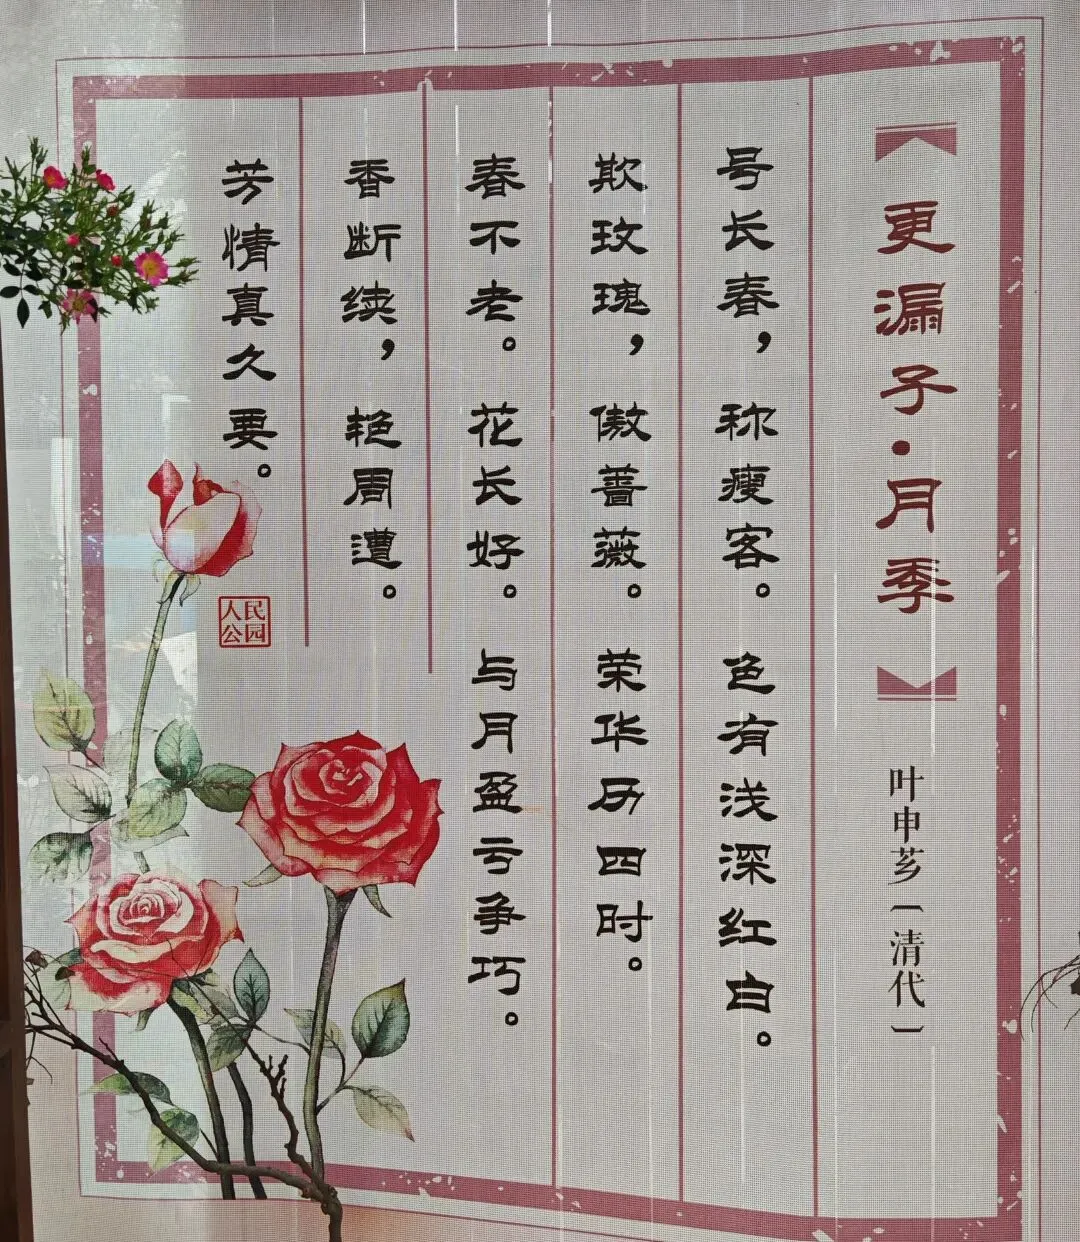 更漏子·月季
叶申芗〔清代〕
号长春，称瘦客。色有浅深红白。
欺玫瑰，傲蔷薇。荣华历四时。
春不老。花长好。与月盈亏争巧。
香断续，艳周遭。
芳情真久要。
人民公园